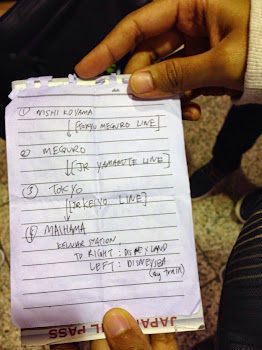 ① NISHI KOYAMA
↓ [TOKYO MEGURO LINE]
② MEGURO
↓ [JR YAMANOTE LINE]
③ TOKYO
↓ [JR KEIYO LINE]
④ MAIHAMA
STATION
TO RIGHT : DISNEYLAND
LEFT : DISNEYSEA
(by train)
JAPAN RAIL PASS